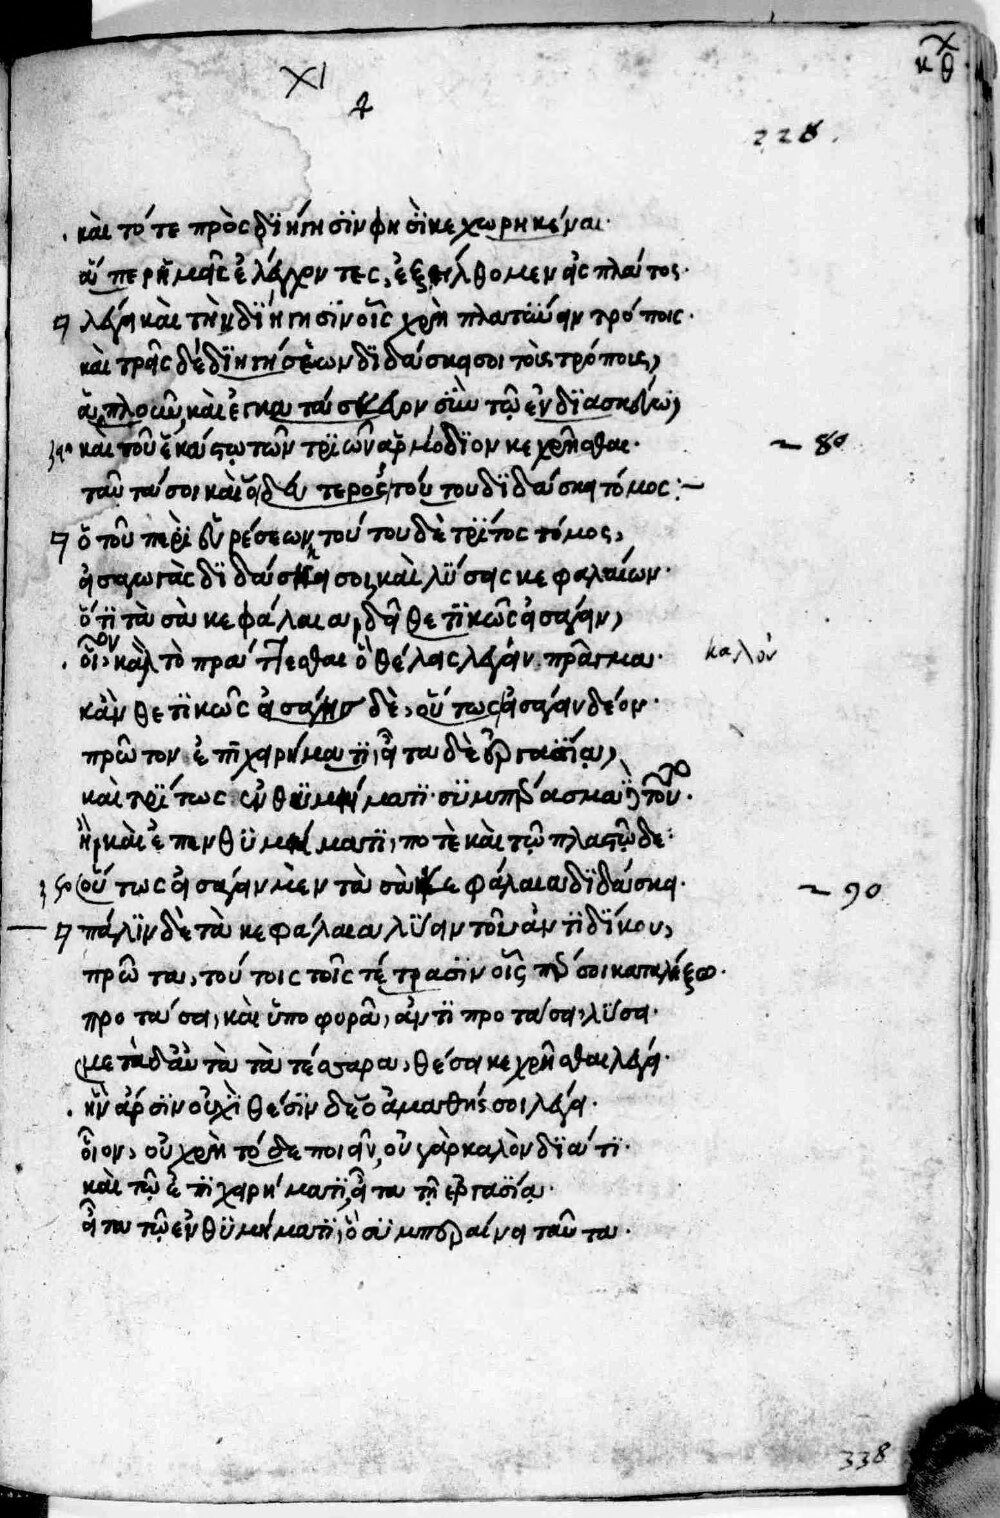 XI
4
κθ
228.
καὶ τότε πρὸς διήγησιν φησὶ κεχωρηκέναι·
ἅπερ ἡμᾶς ἐλέγχοντες, ἐξείλθομεν εἰς πλάτος·
λέγει καὶ τὴν διήγησιν οἷς χρὴ πλατύνειν τρόποις·
καὶ τρεῖς δὲ διηγήσεων διδάσκει σοι τοὺς τρόπους,
ἁπλοῦν, καὶ ἐγκατάσκευον σὺν τῷ ἐνδιασκεύῳ,
καὶ τοῦ ἑκάστῳ τῶν τριῶν ἁρμόδιον κεχρῆσθαι·
~ 80
ταῦτά σοι καὶ ὁ δεύτερος τούτου διδάσκει τόμος:~
ὁ τοῦ περὶ εὑρέσεων τούτου δὲ τρίτος τόμος,
εἰσαγωγὰς διδάσκει σοι, καὶ λύσεις κεφαλαίων·
ὅτι τὰ σὰ κεφάλαια, δεῖ θετικῶς εἰσάγειν,
οἷον, καλὸν τὸ πράττεσθαι ὃ θέλεις λέγειν πρᾶγμα·
καλόν
κἂν θετικῶς εἰσάγῃς δὲ, οὕτως εἰσάγειν δέον·
πρῶτον ἐπιχειρήματι, εἶτα δὲ ἐργασίᾳ,
καὶ τρίτως ἐνθυμήματι· συμπέρασμα τούτου·
ἢ καὶ ἐπενθυμήματι, ποτὲ καὶ τῷ πλαστῷ δε·
οὕτως εἰσάγειν μὲν τὰ σὰ κεφάλαια διδάσκει·
~ 90
πάλιν δὲ τὰ κεφάλαια λύειν τοῦ ἀντιδίκου,
πρῶτα, τούτοις τοῖς τέτρασιν οἷς περ σοι καταλέξω·
προτάσει, καὶ ὑποφορᾷ, ἀντιπροτάσει, λύσει·
μετὰ δ' αὖ τὰ τὰ τέσσαρα, θέσει κεχρῆσθαι λέγει·
ἣν ἄρσιν οὐχὶ θέσιν δὲ ὁ ἀμαθής σοι λέγει·
οἷον, οὐ χρὴ τόδε ποιεῖν, οὐ γὰρ καλὸν διά τι·
καὶ τῷ ἐπιχειρήματι, εἶτα τῇ ἐργασίᾳ·
εἶτα τῷ ἐνθυμήματι, ὃ συμπεραίνει ταῦτα·
338